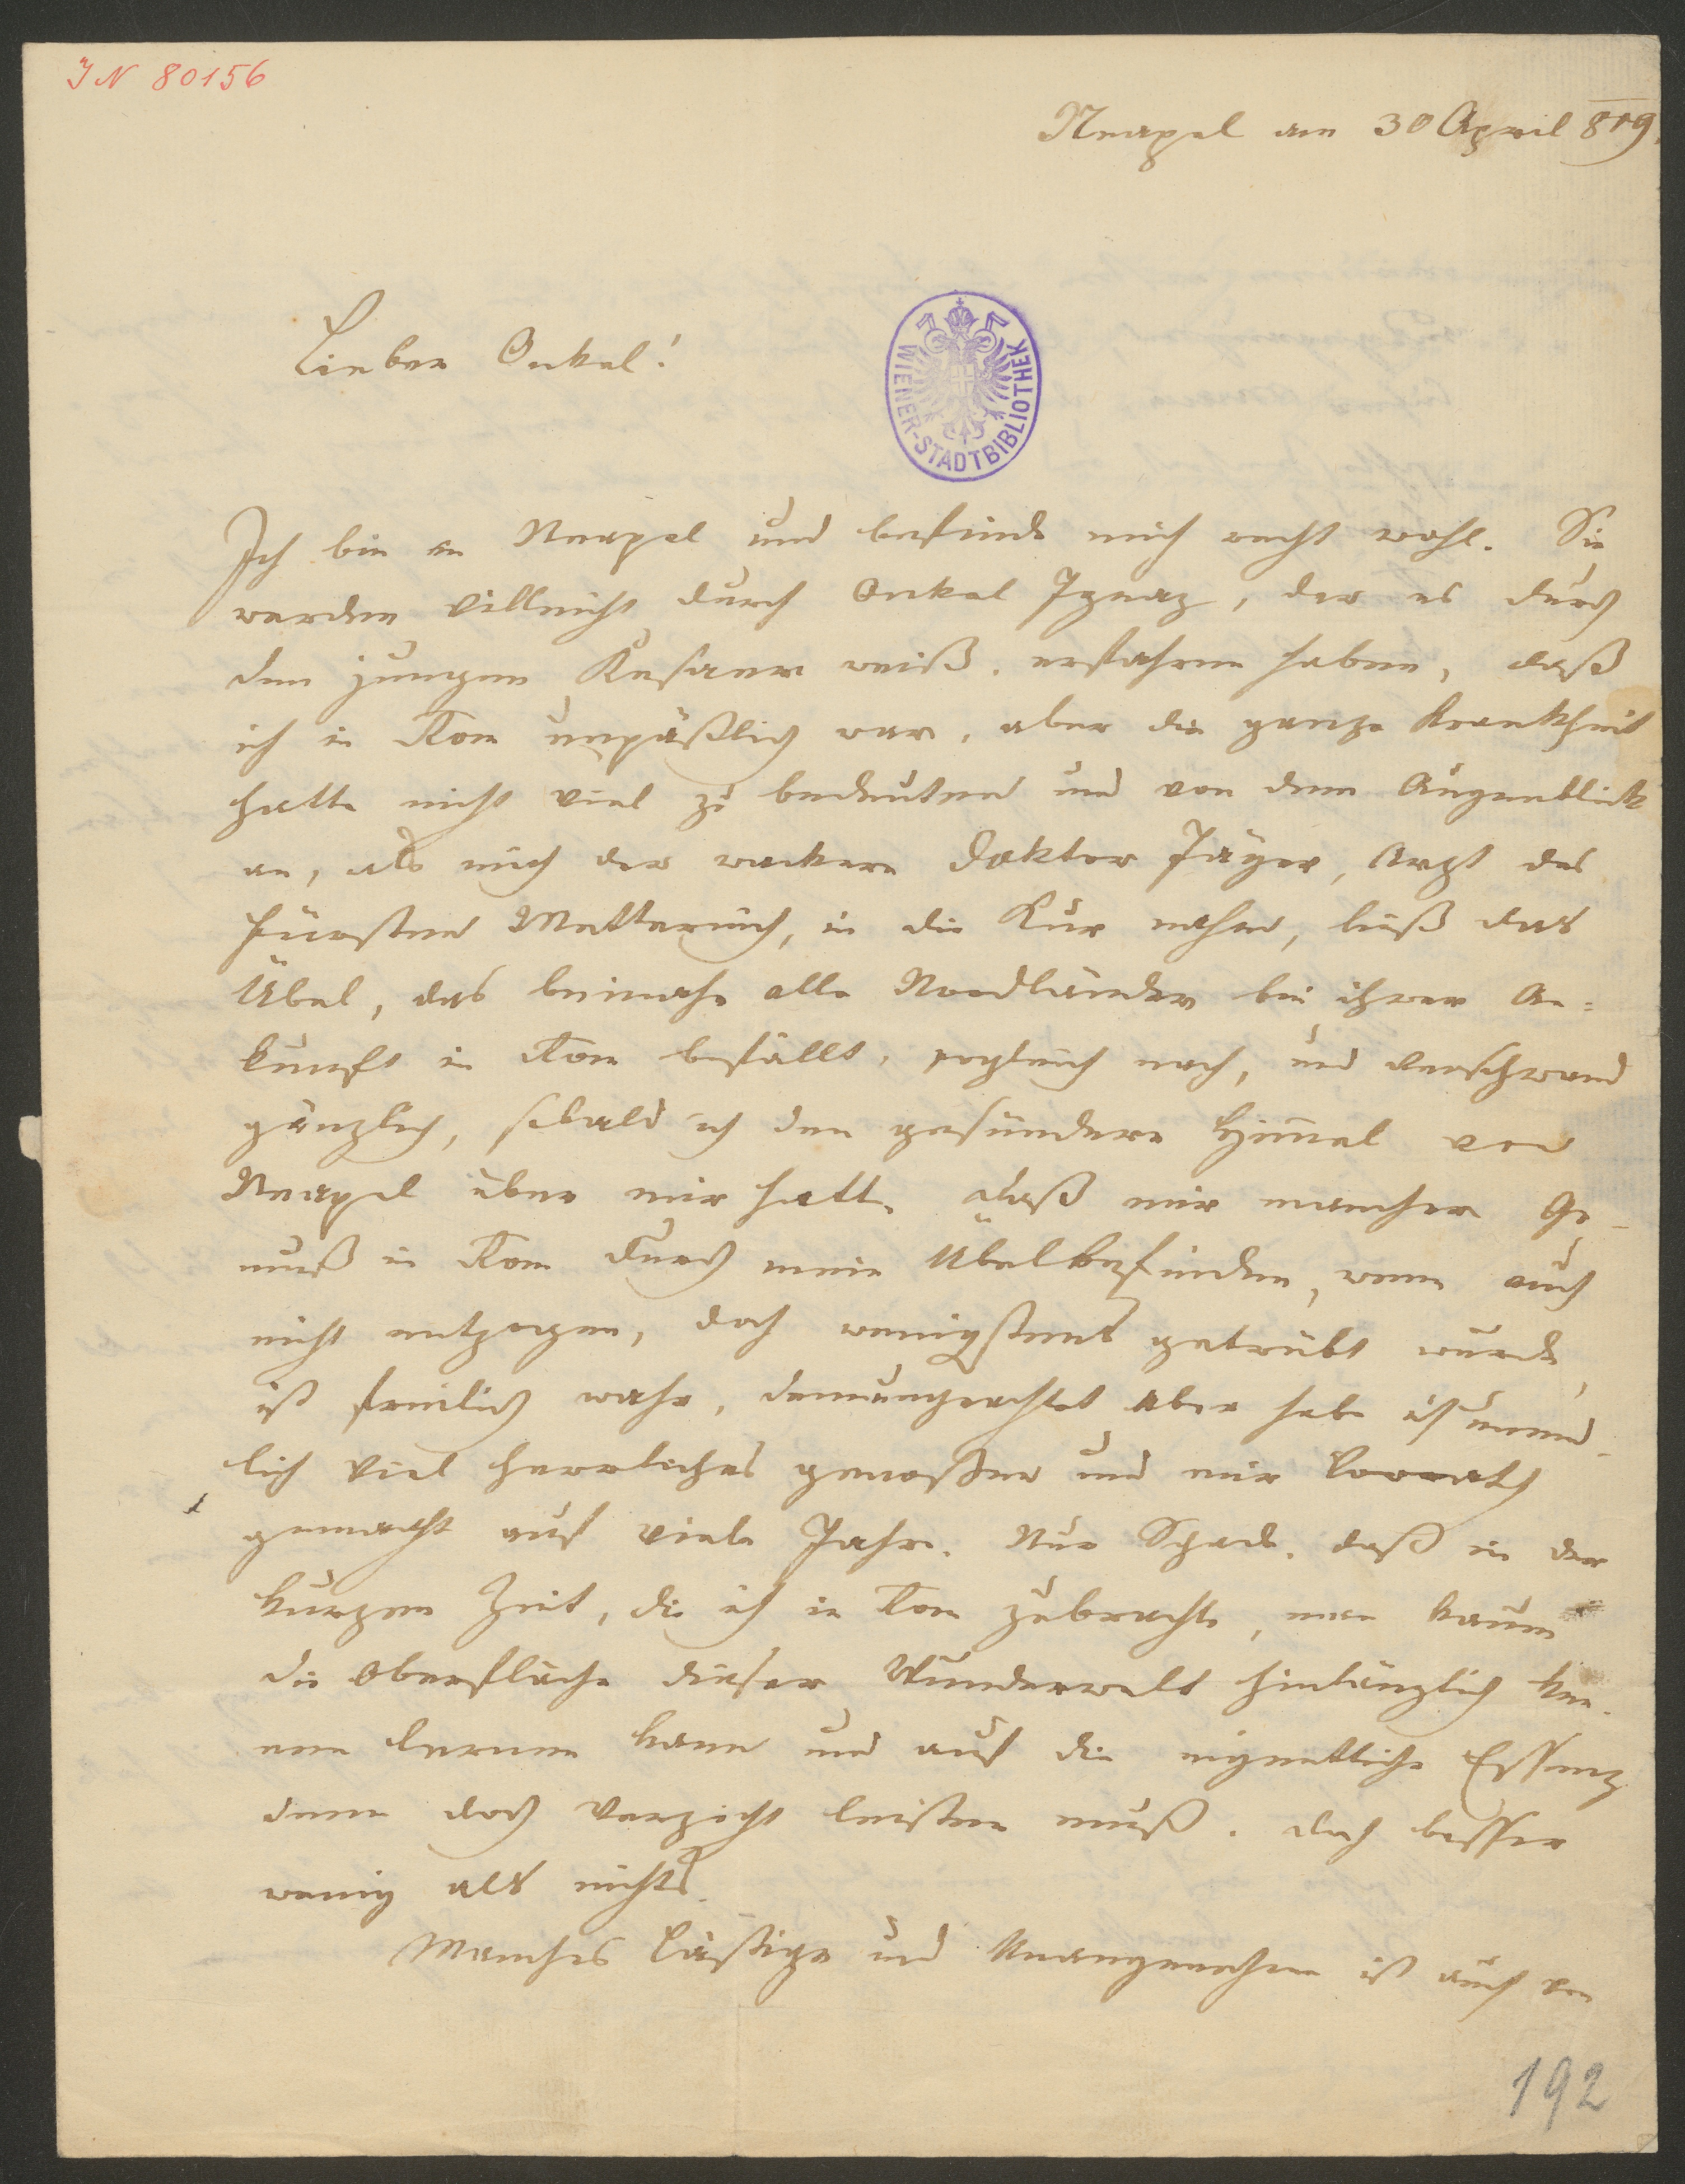 IN 80156
Neapel am 30 April 819.
Lieber Onkel!
WIENER-STADTBIBLIOTHEK
Ich bin in Neapel und befinde mich recht wohl. Sie
werden villeicht durch Onkel Ignaz, der es durch
den jungen weiß, erfahren haben, daß
ich in Rom unpäßlich war, aber die ganze Krankheit
hatte nicht viel zu bedeuten und von dem Augenblick
an, als mich der wackere Doktor Jäger, Arzt des
Fürsten Metternich, in die Kur nahm, ließ das
Übel, das beinahe alle Nordländer bei ihrer An=
kunft in Rom befällt, sogleich nach, und verschwand
gänzlich, sobald ich den gesündern Himmel von
Neapel über mir hatte. Daß mir mancher Ge-
nuß in Rom durch mein Übelbefinden, wenn auch
nicht entzogen, doch wenigstens getrübt wurde,
ist freilich wahr, demungeachtet aber habe ich unend-
lich viel herrliches genoßen und mir Vorrath
gemacht auf viele Jahre. Nur Schade, daß in der
kurzen Zeit, die ich in Rom zubrachte, man kaum
die Oberfläche dieser Wunderwelt hinlänglich ken-
nen lernen kann und auf die eigentliche Essenz
denn doch Verzicht leisten muß. Doch besser
wenig als nichts.
Manches Lästige und Unangenehme ist auch von
192